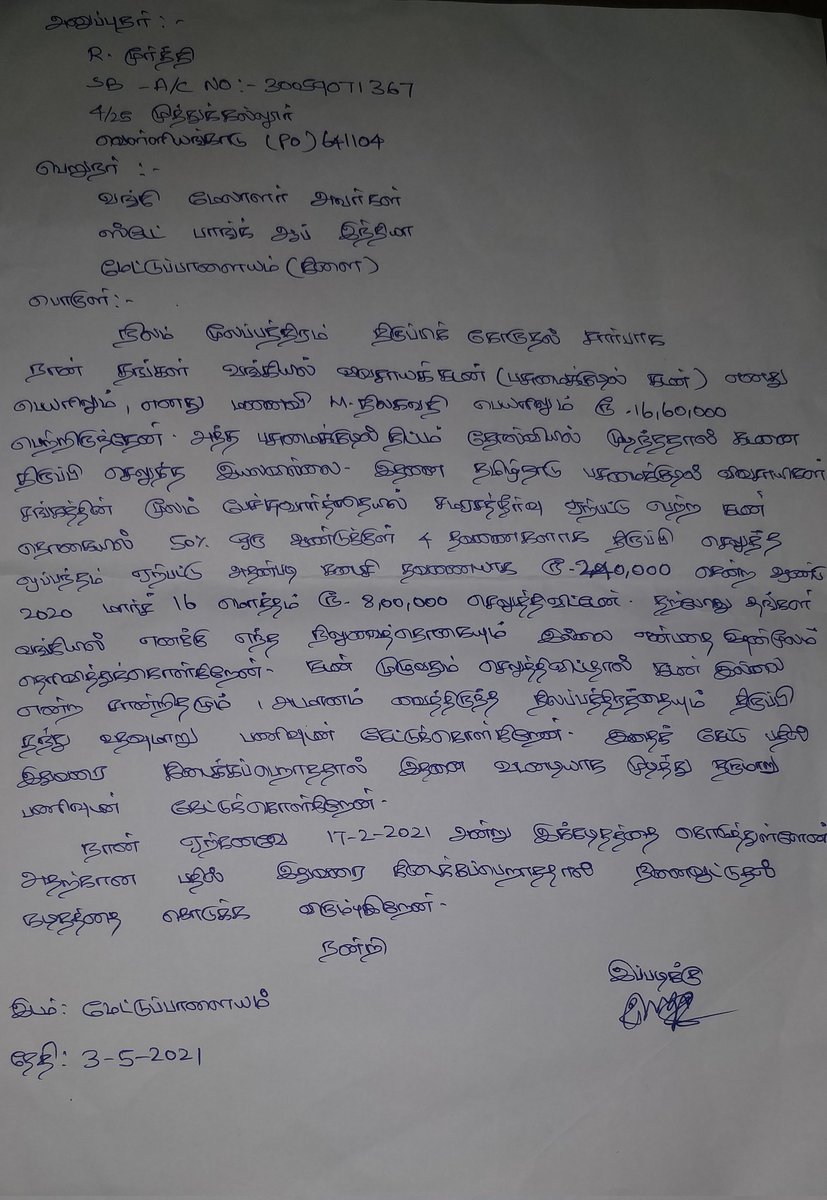 அனுப்புநர் :-
R. மூர்த்தி
SB - A/C NO :- 30059071367
4/25 முத்துக்கல்லூர்
வெள்ளியங்காடு (PO) 641104
பெறுநர் :-
வங்கி மேலாளர் அவர்கள்
ஸ்டேட் பாங்க் ஆப் இந்தியா
மேட்டுப்பாளையம் (கிளை)
பொருள் :-
நிலம் மூலப்பத்திரம் திருப்பிக் கோருதல் சார்பாக
நான் தங்கள் வங்கியில் விவசாயக்கடன் (பசுமைக்குடில் கடன்) எனது
பெயரிலும், எனது மனைவி M. திலகவதி பெயரிலும் ரூ -16,60,000
பெற்றிருந்தேன். அந்த பசுமைக்குடில் திட்டம் தோல்வியில் முடிந்ததால் கடனை
திருப்பி செலுத்த இயலவில்லை. இதனை தமிழ்நாடு பசுமைக்குடில் விவசாயிகள்
சங்கத்தின் மூலம் பேச்சுவார்த்தையில் சமரசத்தீர்வு ஏற்பட்டு பெற்ற கடன்
தொகையில் 50% ஒரு ஆண்டுக்குள் 4 தவணைகளாக திருப்பி செலுத்த
ஒப்பந்தம் ஏற்பட்டு அதன்படி கடைசி தவணையாக ரூ -240,000 சென்ற ஆண்டு
2020 மார்ச் 16 மொத்தம் ரூ- 8,00,000 செலுத்திவிட்டேன். தற்போது தங்கள்
வங்கியில் எனக்கு எந்த நிலுவைத்தொகையும் இல்லை என்பதை இதன்மூலம்
தெரிவித்துக்கொள்கிறேன். கடன் முழுவதும் செலுத்திவிட்டால் கடன் இல்லை
என்ற சான்றிதழும், அடமானம் வைத்திருந்த நிலப்பத்திரத்தையும் திருப்பி
தந்து உதவுமாறு பணிவுடன் கேட்டுக்கொள்கிறேன். இதைக் கேட்டு பதில்
இதுவரை கிடைக்கப்பெறாததால் இதனை உடனடியாக முடித்து தருமாறு
பணிவுடன் கேட்டுக்கொள்கிறேன்.
நான் ஏற்கனவே 17-2-2021 அன்று இக்கடிதத்தை கொடுத்துள்ளேன்
அதற்கான பதில் இதுவரை கிடைக்கப்பெறாததால் நினைவூட்டுதல்
கடிதத்தை கொடுக்க விரும்புகிறேன்.
நன்றி
இப்படிக்கு
இடம் : மேட்டுப்பாளையம்
தேதி : 3-5-2021